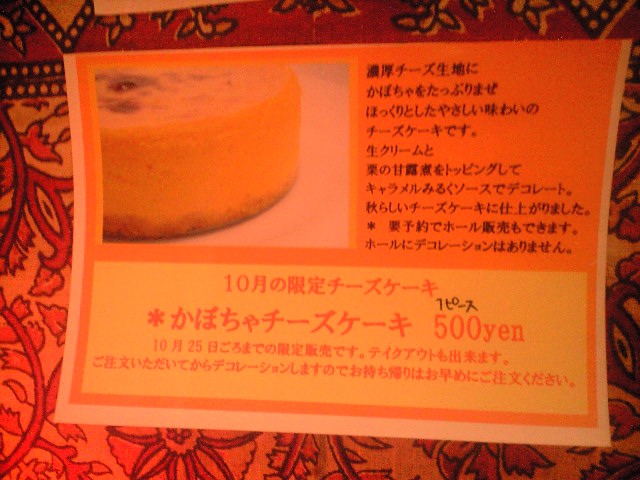 濃厚チーズ生地に
かぼちゃをたっぷりまぜ
ほっくりとしたやさしい味わいの
チーズケーキです。
生クリームと
栗の甘露煮をトッピングして
キャラメルみるくソースでデコレート。
秋らしいチーズケーキに仕上がりました。
＊ 要予約でホール販売もできます。
ホールにデコレーションはありません。
10月の限定チーズケーキ
1ピース
＊かぼちゃチーズケーキ 500yen
10月25日ごろまでの限定販売です。テイクアウトも出来ます。
ご注文いただいてからデコレーションしますのでお持ち帰りはお早めにご注文ください。